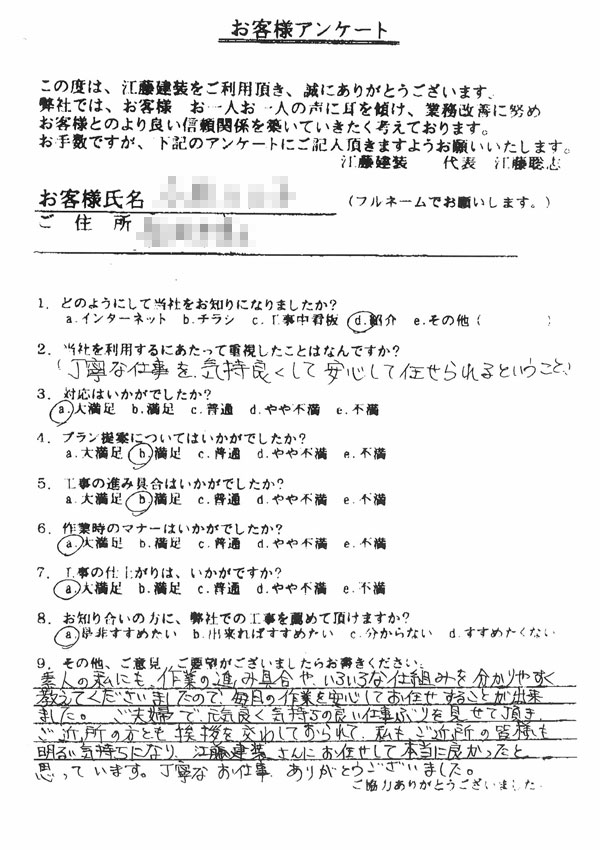 お客様アンケート
この度は、江藤建装をご利用頂き、誠にありがとうございます。
弊社では、お客様 お一人お一人の声に耳を傾け、業務改善に努め
お客様とのより良い信頼関係を築いていきたく考えております。
お手数ですが、下記のアンケートにご記入頂きますようお願いいたします。
江藤建装 代表 江藤聡志
お客様氏名 (フルネームでお願いします。)
ご住所
1. どのようにして当社をお知りになりましたか?
a.インターネット b.チラシ c.工事中看板 d.紹介 e.その他( )
2. 当社を利用するにあたって重視したことはなんですか?
(丁寧な仕事を気持良くして安心して任せられるということ)
3. 対応はいかがでしたか?
a.大満足 b.満足 c.普通 d.やや不満 e.不満
4. プラン提案についてはいかがでしたか?
a.大満足 b.満足 c.普通 d.やや不満 e.不満
5. 工事の進み具合はいかがでしたか?
a.大満足 b.満足 c.普通 d.やや不満 e.不満
6. 作業時のマナーはいかがでしたか?
a.大満足 b.満足 c.普通 d.やや不満 e.不満
7. 工事の仕上がりは、いかがですか?
a.大満足 b.満足 c.普通 d.やや不満 e.不満
8. お知り合いの方に、弊社での工事を薦めて頂けますか?
a.是非すすめたい b.出来ればすすめたい c.分からない d.すすめたくない
9. その他、ご意見、ご要望がございましたらお書きください。
素人の私にも、作業の進み具合や、いろいろな仕組みを分かりやすく
教えてくださいましたので、毎日の作業を安心してお任せすることが出来
ました。 ご夫婦で、元気良く気持ちの良い仕事ぶりを見せて頂き、
ご近所の方とも挨拶を交わしておられて、私も、ご近所の皆様も
明るい気持ちになり、江藤建装さんにお任せして本当に良かったと
思っています。丁寧なお仕事、ありがとうございました。
ご協力ありがとうございました。